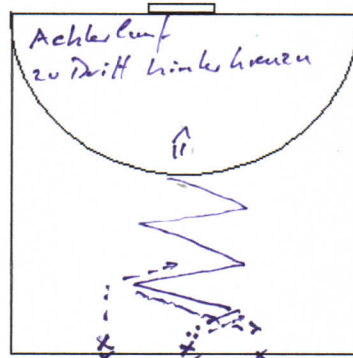 Achterlauf
zu Dritt hinterkreuzen